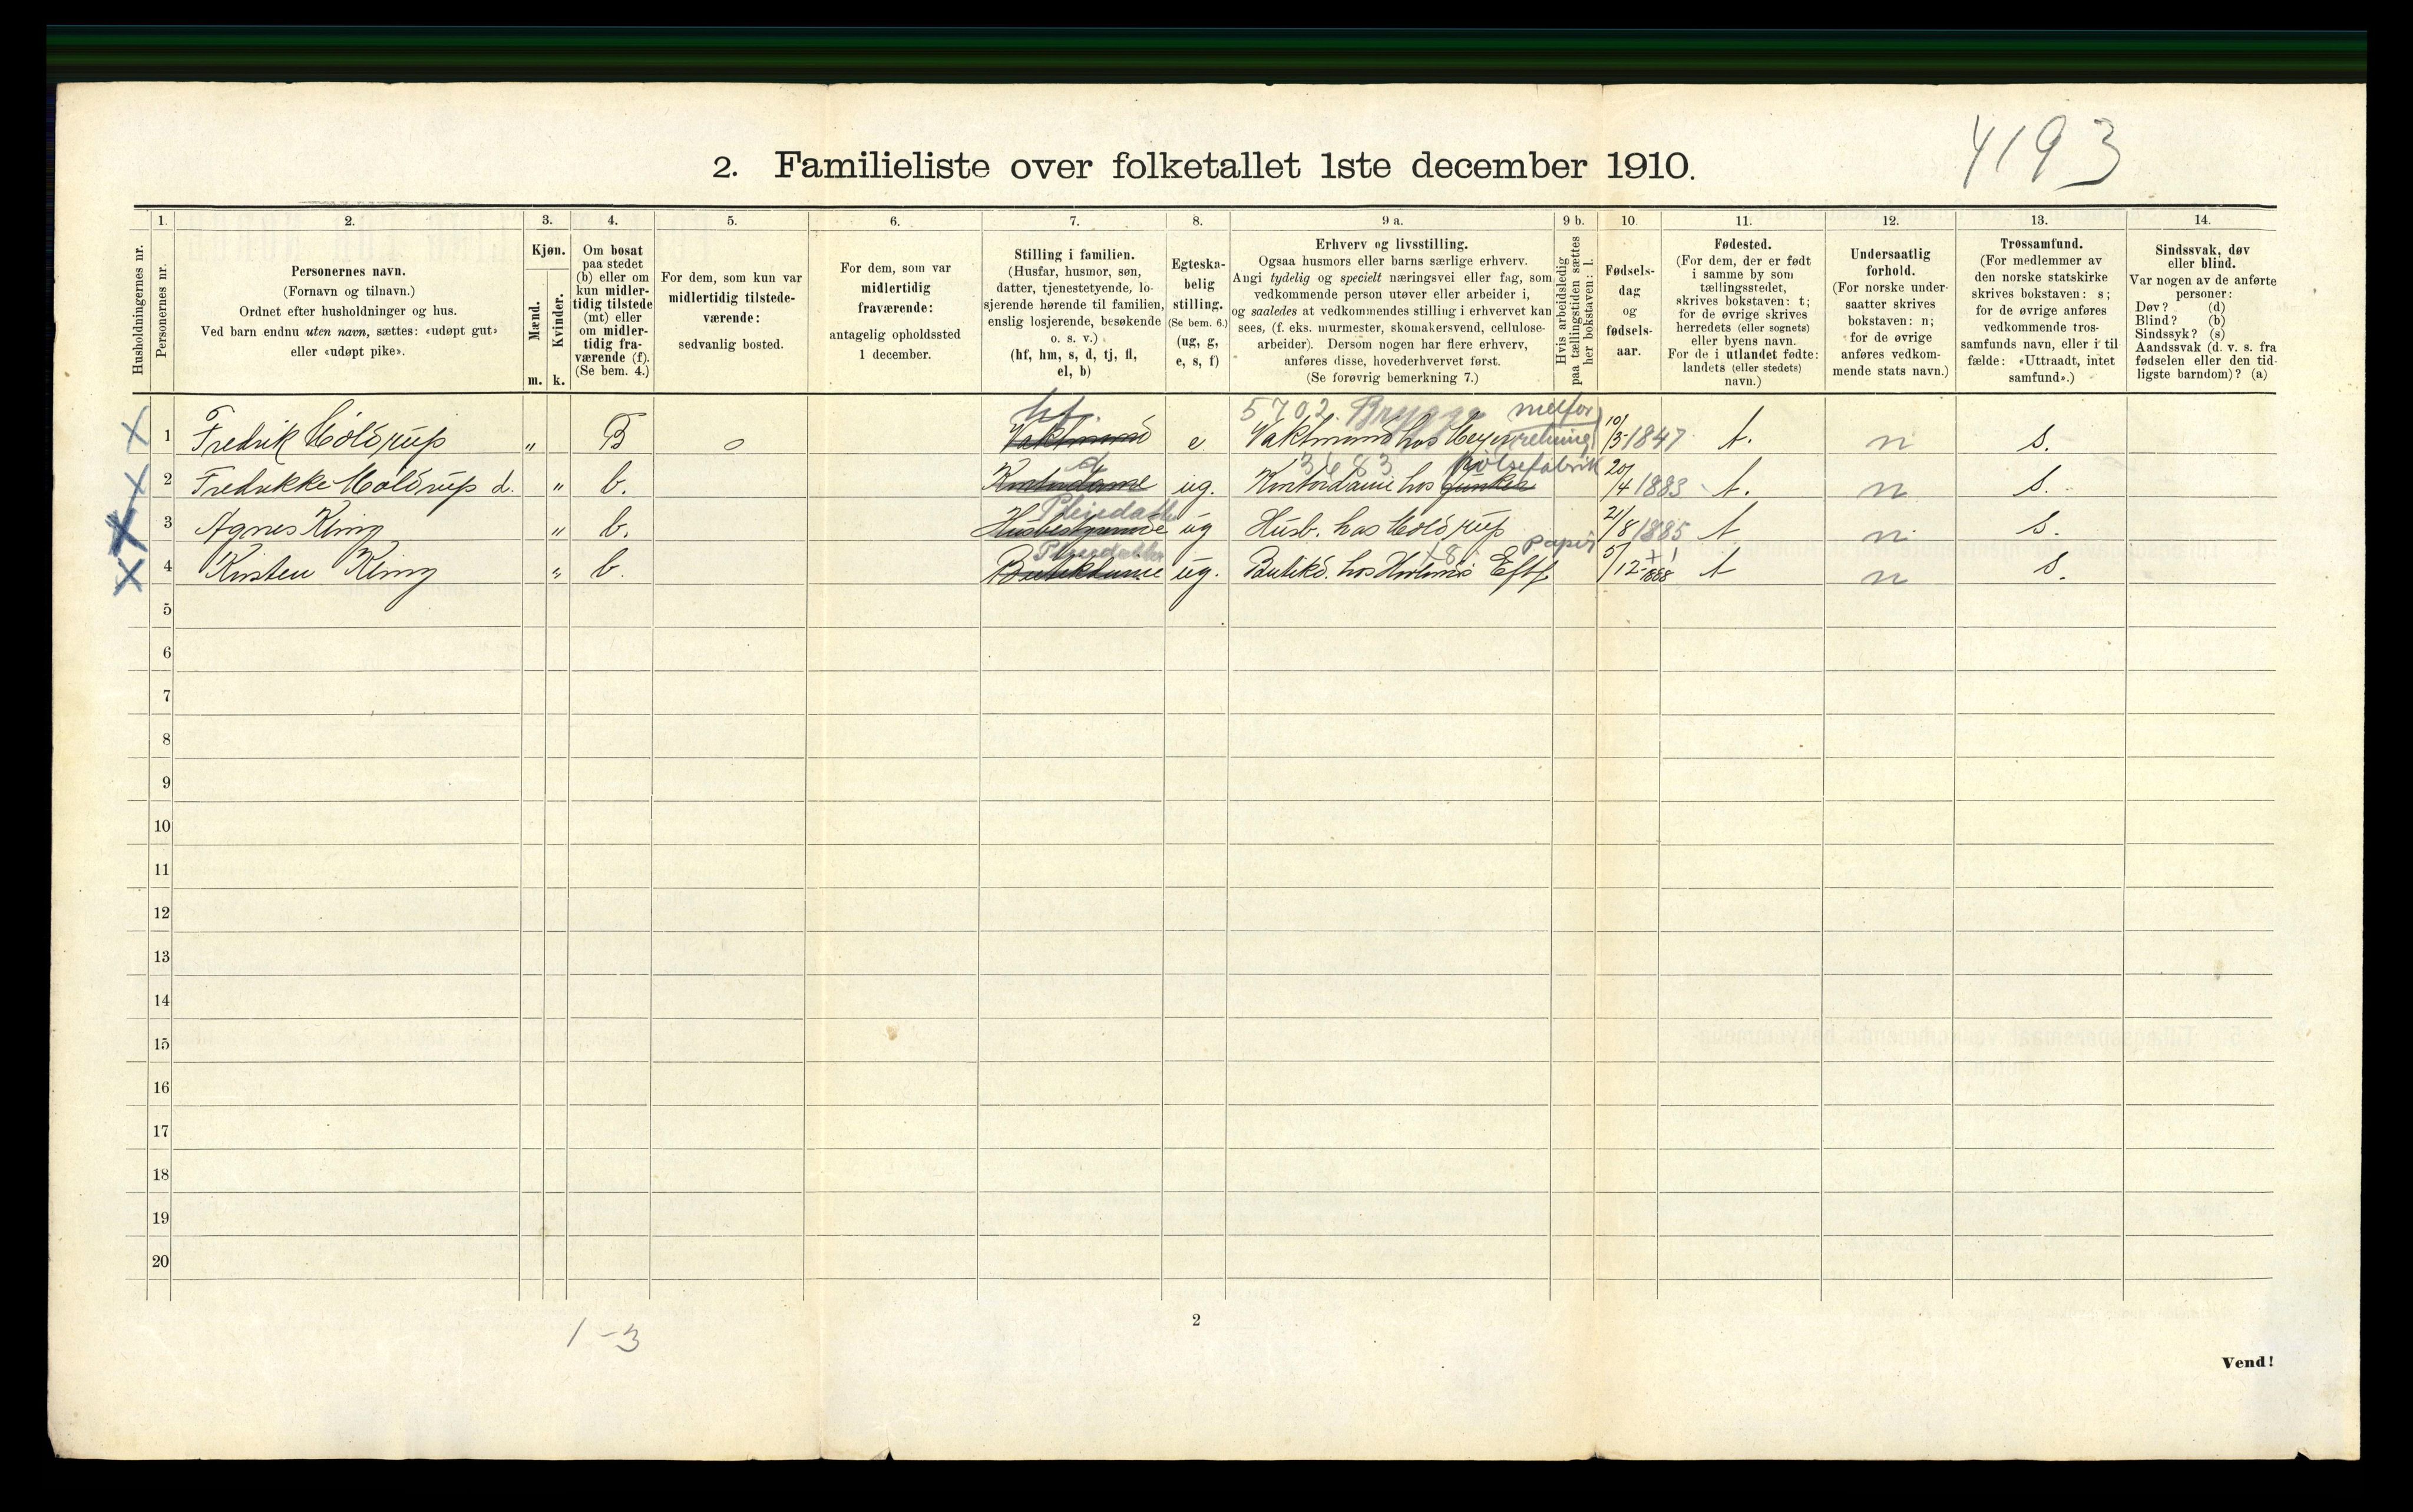 4193
2. Familieliste over folketallet 1ste december 1910.
1. 2. 3. 4. 5. 6. 7. 8. 9 a. 9 b. 10. 11. 12. 13. 14.
Husholdningernes nr.
Personernes nr.
Personernes navn.
(Fornavn og tilnavn.)
Ordnet efter husholdninger og hus.
Ved barn endnu uten navn, sættes: «udøpt gut»
eller «udøpt pike».
Kjøn.
Mænd.
Kvinder.
m. k.
Om bosat
paa stedet
(b) eller om
kun midler-
tidig tilstede
(mt) eller
om midler-
tidig fra-
værende (f).
(Se bem. 4.)
For dem, som kun var
midlertidig tilstede-
værende:
sedvanlig bosted.
For dem, som var
midlertidig
fraværende:
antagelig opholdssted
1 december.
Stilling i familien.
(Husfar, husmor, søn,
datter, tjenestetyende, lo-
sjerende hørende til familien,
enslig losjerende, besøkende
o. s. v.)
(hf, hm, s, d, tj, fl,
el, b)
Egteska-
belig
stilling.
(Se bem. 6.)
(ug, g,
e, s, f)
Erhverv og livsstilling.
Ogsaa husmors eller barns særlige erhverv.
Angi tydelig og specielt næringsvei eller fag, som
vedkommende person utøver eller arbeider i,
og saaledes at vedkommendes stilling i erhvervet kan
sees, (f. eks. murmester, skomakersvend, cellulose-
arbeider). Dersom nogen har flere erhverv,
anføres disse, hovederhvervet først.
(Se forøvrig bemerkning 7.)
Hvis arbeidsledig
paa tællingstiden sættes
her bokstaven: l.
Fødsels-
dag
og
fødsels-
aar.
Fødested.
(For dem, der er født
i samme by som
tællingsstedet,
skrives bokstaven: t;
for de øvrige skrives
herredets (eller sognets)
eller byens navn.
For de i utlandet fødte:
landets (eller stedets)
navn.)
Undersaatlig
forhold.
(For norske under-
saatter skrives
bokstaven: n;
for de øvrige
anføres vedkom-
mende stats navn.)
Trossamfund.
(For medlemmer av
den norske statskirke
skrives bokstaven: s;
for de øvrige anføres
vedkommende tros-
samfunds navn, eller i til-
fælde: «Uttraadt, intet
samfund».)
Sindssvak, døv
eller blind.
Var nogen av de anførte
personer:
Døv? (d)
Blind? (b)
Sindssyk? (s)
Aandssvak (d. v. s. fra
fødselen eller den tid-
ligste barndom)? (a)
hf. 5702. Brygge
1 Fredrik Moldrup " B o Vaktmand e Vaktmand hos 10/3 1847 t. n s.
d
2 Fredrikke Moldrup d. " b. Kontordame ug. Kontordame hos 20/4 1883 t. n s.
Pleiedatter
3 Agnes Kling " b. ug Husb. hos Moldrup 21/8 1885 t n s.
Pleiedatter Papir
4 Kirsten Kling " b. Butikdame ug. Butikd. hos Eftf. 5/12 1888 t n s.
5
6
7
8
9
10
11
12
13
14
15
16
17
18
19
20
1-3
2
Vend!